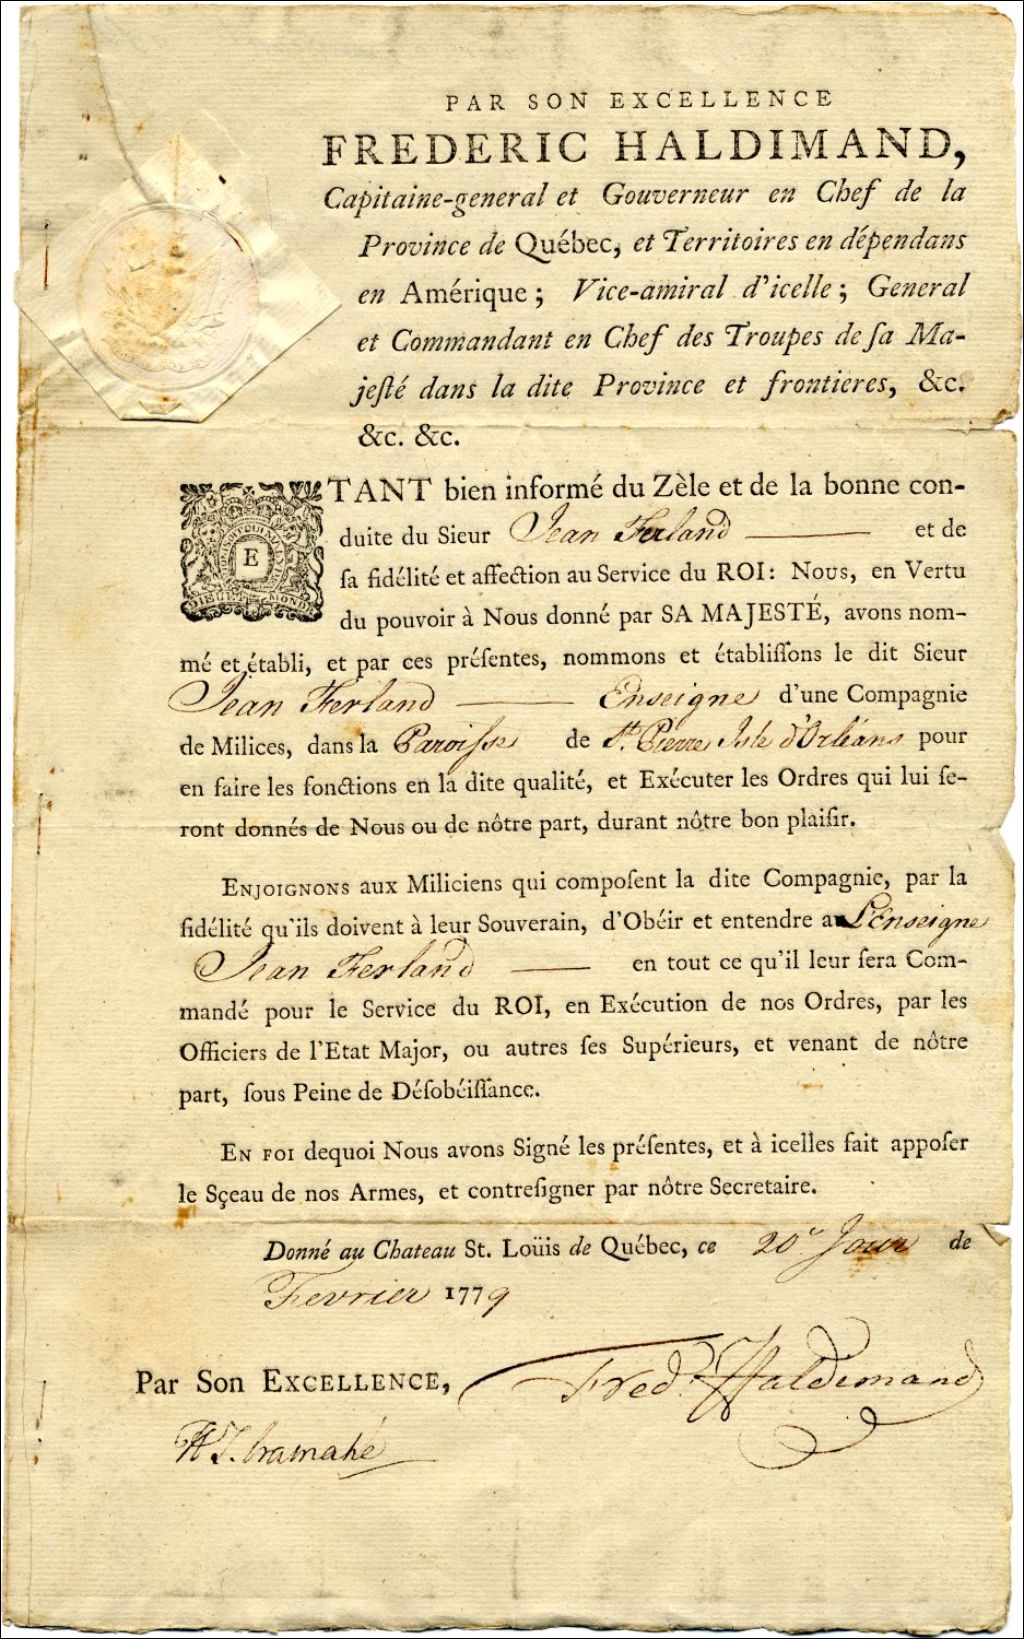 PAR SON EXCELLENCE
FREDERIC HALDIMAND,
Capitaine-general et Gouverneur en Chef de la
Province de Québec, et Territoires en dépendans
en Amérique; Vice-amiral d'icelle; General
et Commandant en Chef des Troupes de ſa Ma-
jeſté dans la dite Province et frontieres, &c.
&c. &c.
ETANT bien informé du Zèle et de la bonne con-
duite du Sieur Jean Ferland et de
ſa fidélité et affection au Service du ROI: Nous, en Vertu
du pouvoir à Nous donné par SA MAJESTÉ, avons nom-
mé et établi, et par ces préſentes, nommons et établiſſons le dit Sieur
Jean Ferland Enseigne d'une Compagnie
de Milices, dans la Paroiſse de St. Pierre Isle d'Orléans pour
en faire les fonctions en la dite qualité, et Exécuter les Ordres qui lui ſe-
ront donnés de Nous ou de nôtre part, durant nôtre bon plaiſir.
ENJOIGNONS aux Miliciens qui compoſent la dite Compagnie, par la
fidélité qu'ils doivent à leur Souverain, d'Obéir et entendre a L'Enseigne
Jean Ferland en tout ce qu'il leur ſera Com-
mandé pour le Service du ROI, en Exécution de nos Ordres, par les
Officiers de l'Etat Major, ou autres ſes Supérieurs, et venant de nôtre
part, ſous Peine de Déſobéiſſance.
EN FOI dequoi Nous avons Signé les préſentes, et à icelles fait appoſer
le Sçeau de nos Armes, et contreſigner par nôtre Secretaire.
Donné au Chateau St. Loüis de Québec, ce 20e Jour de
Fevrier 1779
Par Son EXCELLENCE, Fred: Haldimand
H T. Cramahé